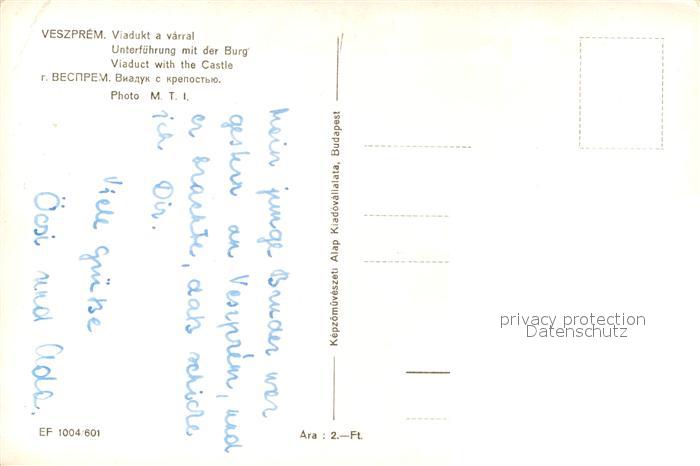 VESZPRÉM. Viadukt a várral
Unterführung mit der Burg
Viaduct with the Castle
г. ВЕСПРЕМ. Виадук с крепостью.
Photo M. T. I.
Mein junge Bruder war
gestern an Veszprém, und
er brachte, daß schicke
ich Dir.
Viele grüße
Öcsi und Ada.
Képzőművészeti Alap Kiadóvállalata, Budapest
privacy protection
Datenschutz
EF 1004/601
Ára : 2.—Ft.